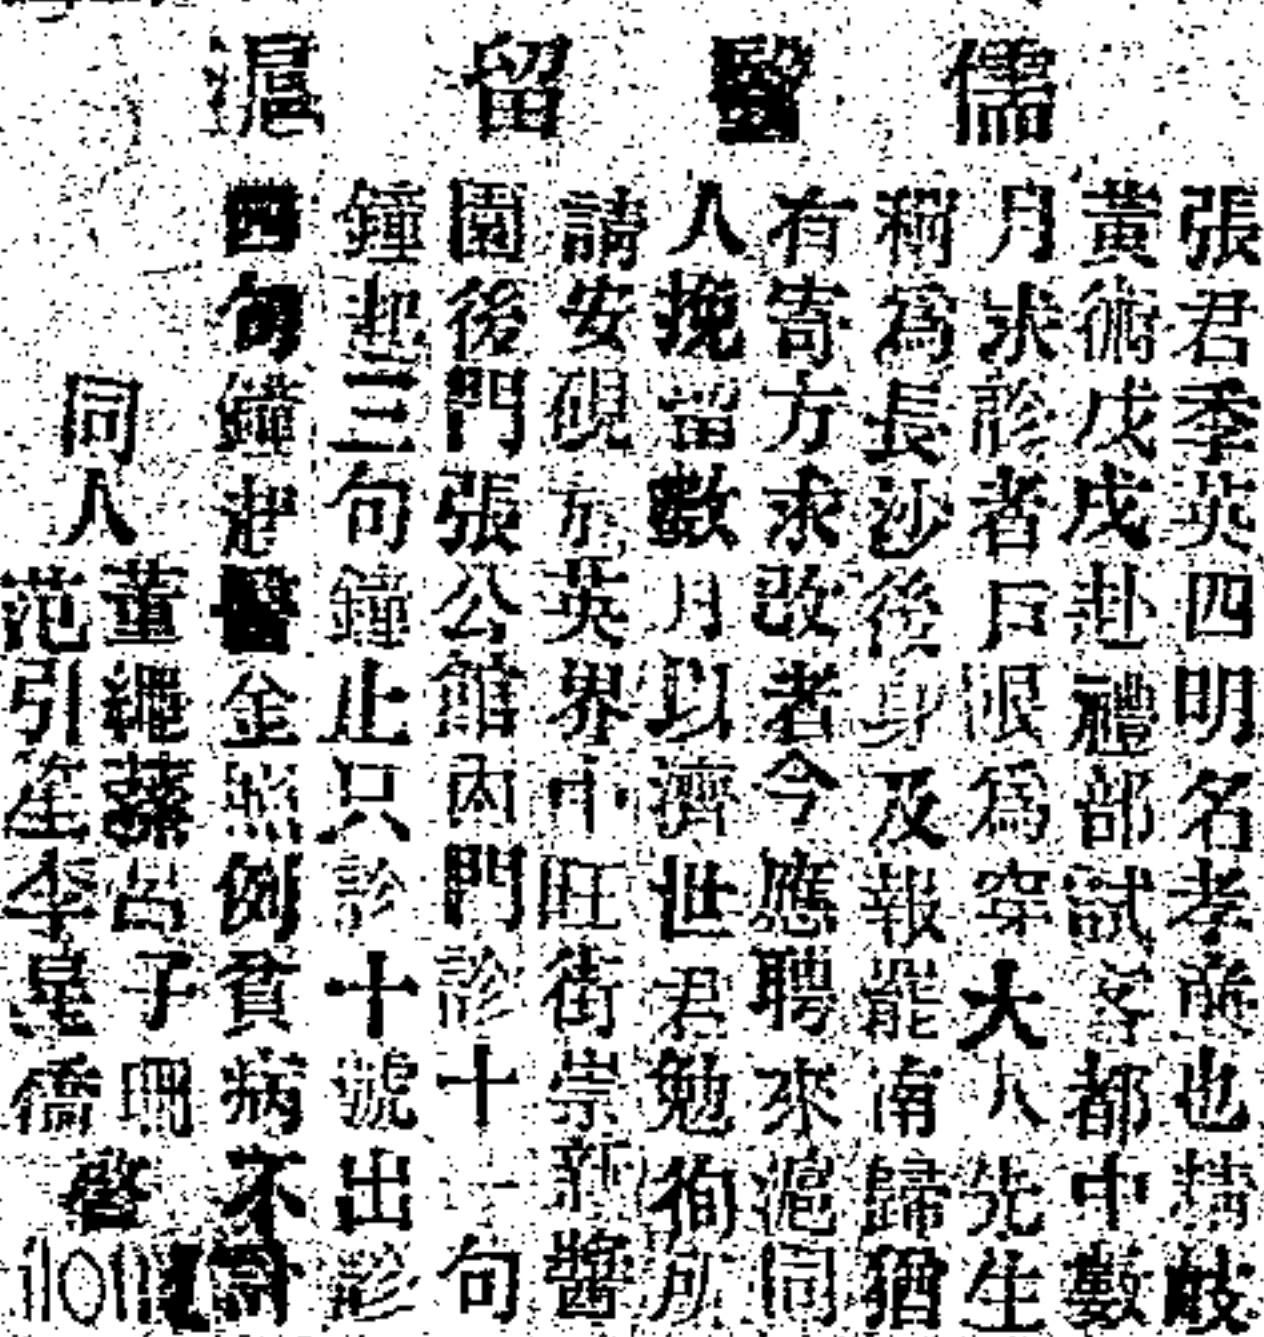 儒醫留滬
張君季英四明名孝廉也精岐
黃術戊戌赴禮部試客都中數
月求診者戶限為穿大人先生
稱為長沙後身及報罷南歸猶
有寄方求改者今應聘來滬同
人挽留數月以濟世君勉徇所
請安硯於英界中旺街崇新醬
園後門張公館內門診十一句
鐘起三句鐘止只診十號出診
四句鐘起醫金照例貧病不計
同人
董繩蓀 呂子珊
范引笙 李星僑
啓